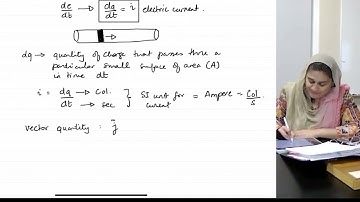 de/dt → dq/dt = i electric current.
dq → quantity of charge that passes thro a
particular small surface of area (A)
in time dt
i = dq/dt → Col. / → sec } SI unit for current = Ampere ~ Col/s
vector quantity : j̄